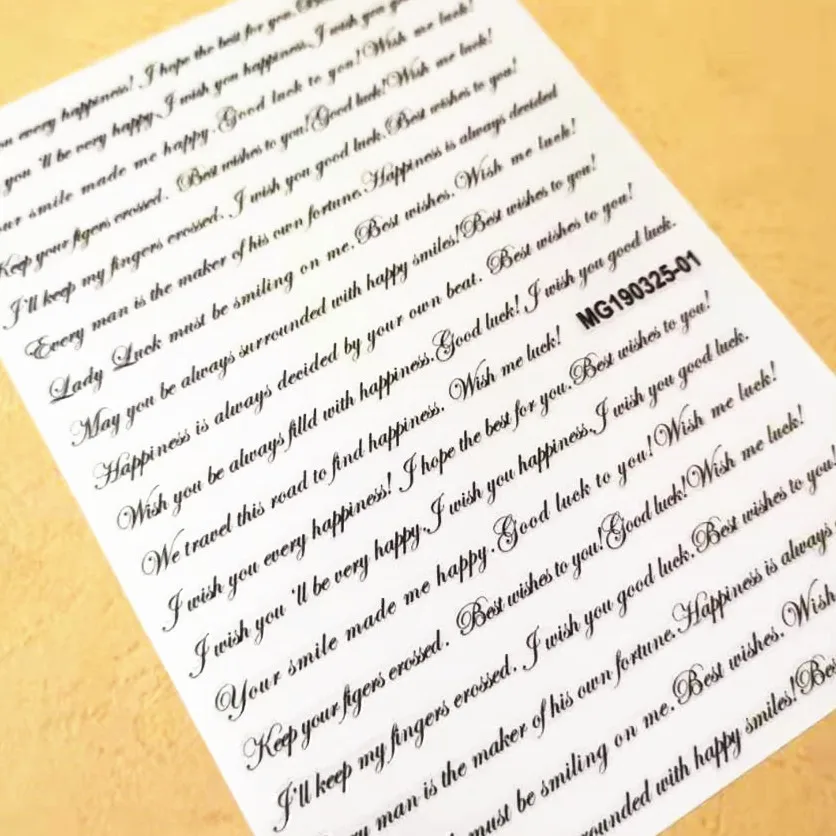 every happiness! I hope the best for you.
you 'll be very happy.I wish you happiness.I wish you
smile made me happy.Good luck to you!Wish me luck!
Keep your figers erossed. Best wishes to you!Good luck!Wish me luck!
I'll keep my fingers erossed. I wish you good luck.Best wishes to you!
Every man is the maker of his own fortune.Happiness is always decided
Lady Luck must be smiling on me.Best wishes.Wish me luck!
May you be always surrounded with happy smiles!Best wishes to you!
Happiness is always decided by your own beat. Best wishes to you!
Wish you be always filld with happiness.Good luck! I wish you good luck.
We travel this road to find happiness. Wish me luck!
MG190325-01
I wish you every happiness! I hope the best for you.Best wishes to you!
I wish you 'll be very happy.I wish you happiness.I wish you good luck.
Your smile made me happy.Good luck to you!Wish me luck!
Keep your figers erossed. Best wishes to you!Good luck!Wish me luck!
I'll keep my fingers erossed. I wish you good luck.Best wishes to you!
man is the maker of his own fortune.Happiness is always
must be smiling on me.Best wishes. Wish
with happy smiles!